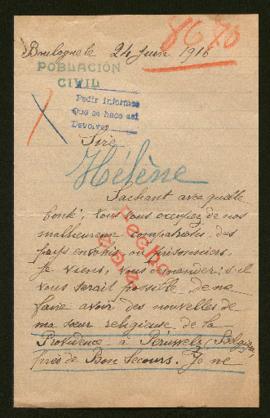 8670
Boulogne le 24 Juin 1916
POBLACIÓN
CIVIL
Pedir informes
Que se hace así
Devolver
Sire
Hélène
Sachant avec quelle
bonté, vous vous occupez de nos
malheureux compatriotes des
pays envahis ou prisonniers,
Je viens, vous demander, s'il
vous serait possible, de me
faire avoir des nouvelles de
hecho
ma sœur religieuse de la
Providence à Péruwelz Belgique,
près de Bon Secours. Je ne